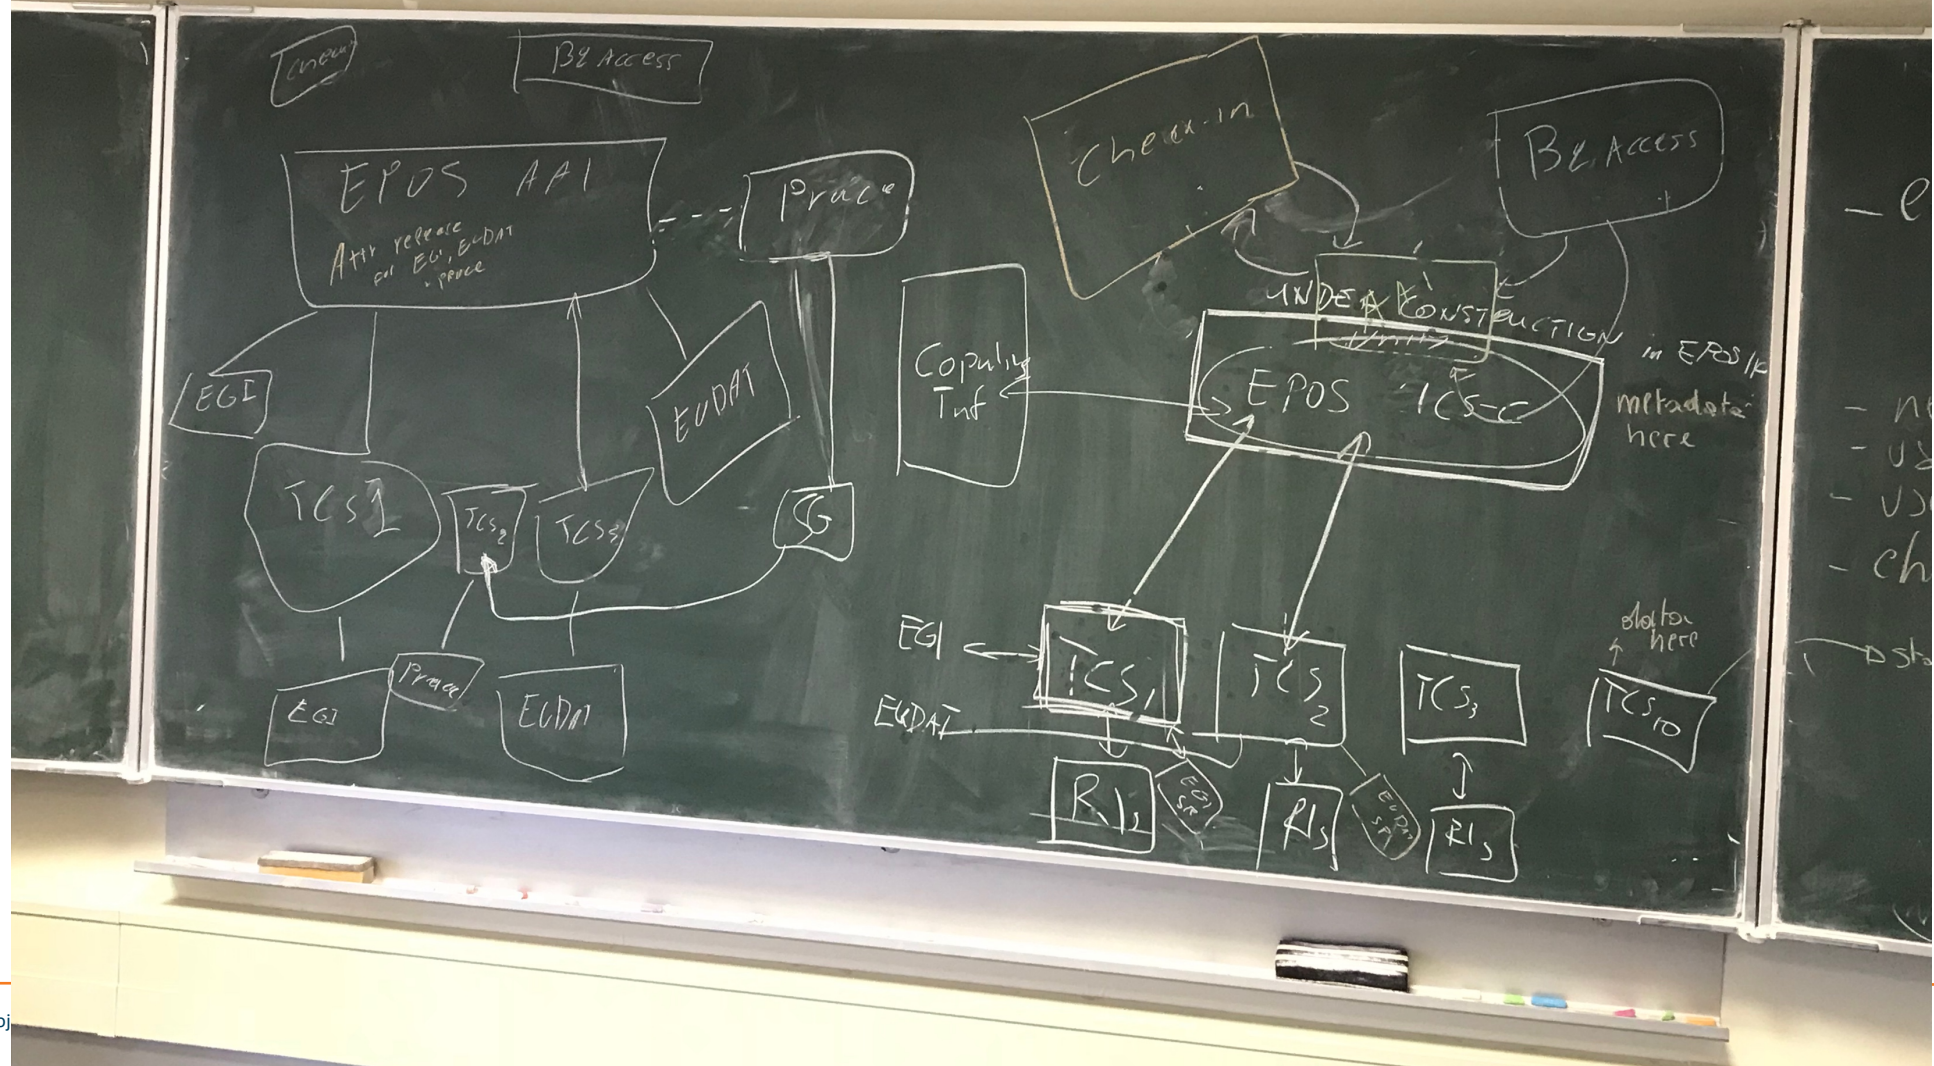 B2 Access
EPOS AAI
Attr release
for EGI, EUDAT
+ prace
Prace
EGI
EUDAT
TCS1
TCS2
TCS3
SG
EGI
Prace
EUDAT
Check-in
B2 Access
UNDER CONSTRUCTION
in EPOS IP
Coputing
Inf
EPOS ICS-C
metadata
here
EGI
EUDAT
TCS1
TCS2
TCS3
TCS10
data
here
RIs
EGI
SP
RIs
EUDAT
SP
RIs
...